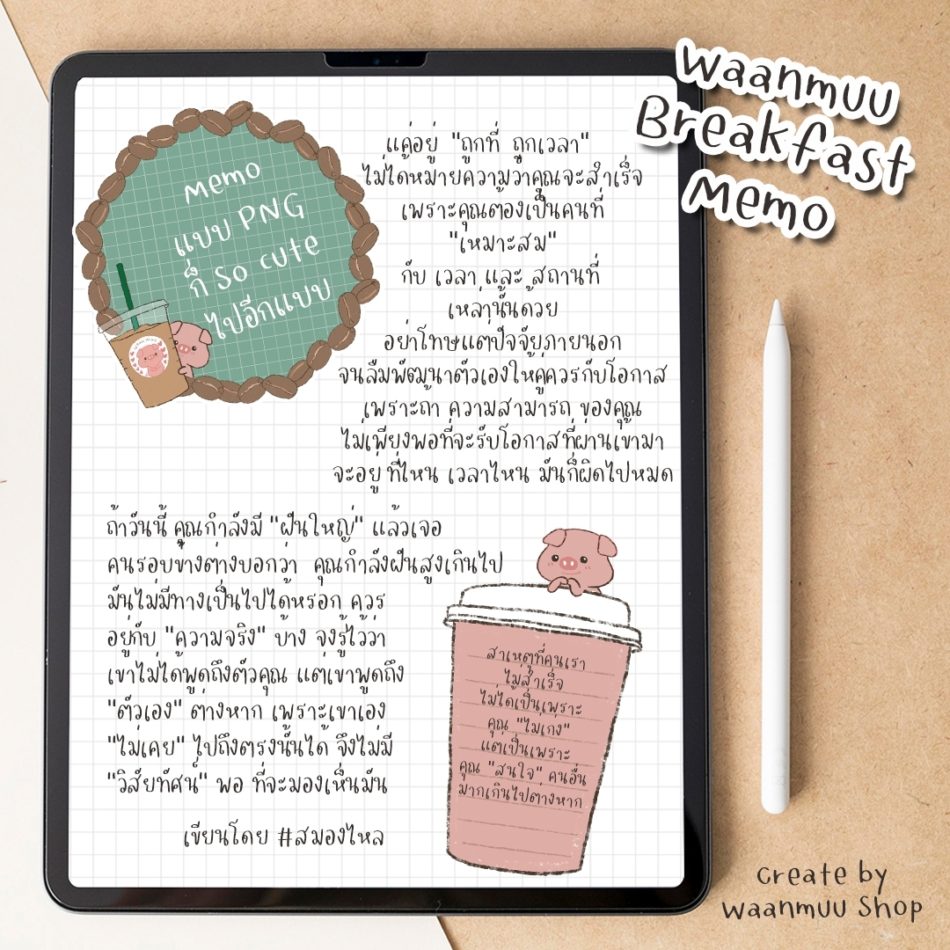 waanmuu
Breakfast
Memo
memo
แบบ PNG
ก็ so cute
ไปอีกแบบ
แค่อยู่ "ถูกที่ ถูกเวลา"
ไม่ได้หมายความว่าคุณจะสำเร็จ
เพราะคุณต้องเป็นคนที่
"เหมาะสม"
กับ เวลา และ สถานที่
เหล่านั้นด้วย
อย่าโทษแต่ปัจจัยภายนอก
จนลืมพัฒนาตัวเองให้คู่ควรกับโอกาส
เพราะถ้า ความสามารถ ของคุณ
ไม่เพียงพอที่จะรับโอกาสที่ผ่านเข้ามา
จะอยู่ ที่ไหน เวลาไหน มันก็ผิดไปหมด
ถ้าวันนี้ คุณกำลังมี "ฝันใหญ่" แล้วเจอ
คนรอบข้างต่างบอกว่า คุณกำลังฝันสูงเกินไป
มันไม่มีทางเป็นไปได้หรอก ควร
อยู่กับ "ความจริง" บ้าง จงรู้ไว้ว่า
เขาไม่ได้พูดถึงตัวคุณ แต่เขาพูดถึง
"ตัวเอง" ต่างหาก เพราะเขาเอง
"ไม่เคย" ไปถึงตรงนั้นได้ จึงไม่มี
"วิสัยทัศน์" พอ ที่จะมองเห็นมัน
เขียนโดย #สมองไหล
สาเหตุที่คนเรา
ไม่สำเร็จ
ไม่ได้เป็นเพราะ
คุณ "ไม่เก่ง"
แต่เป็นเพราะ
คุณ "สนใจ" คนอื่น
มากเกินไปต่างหาก
Create by
waanmuu Shop